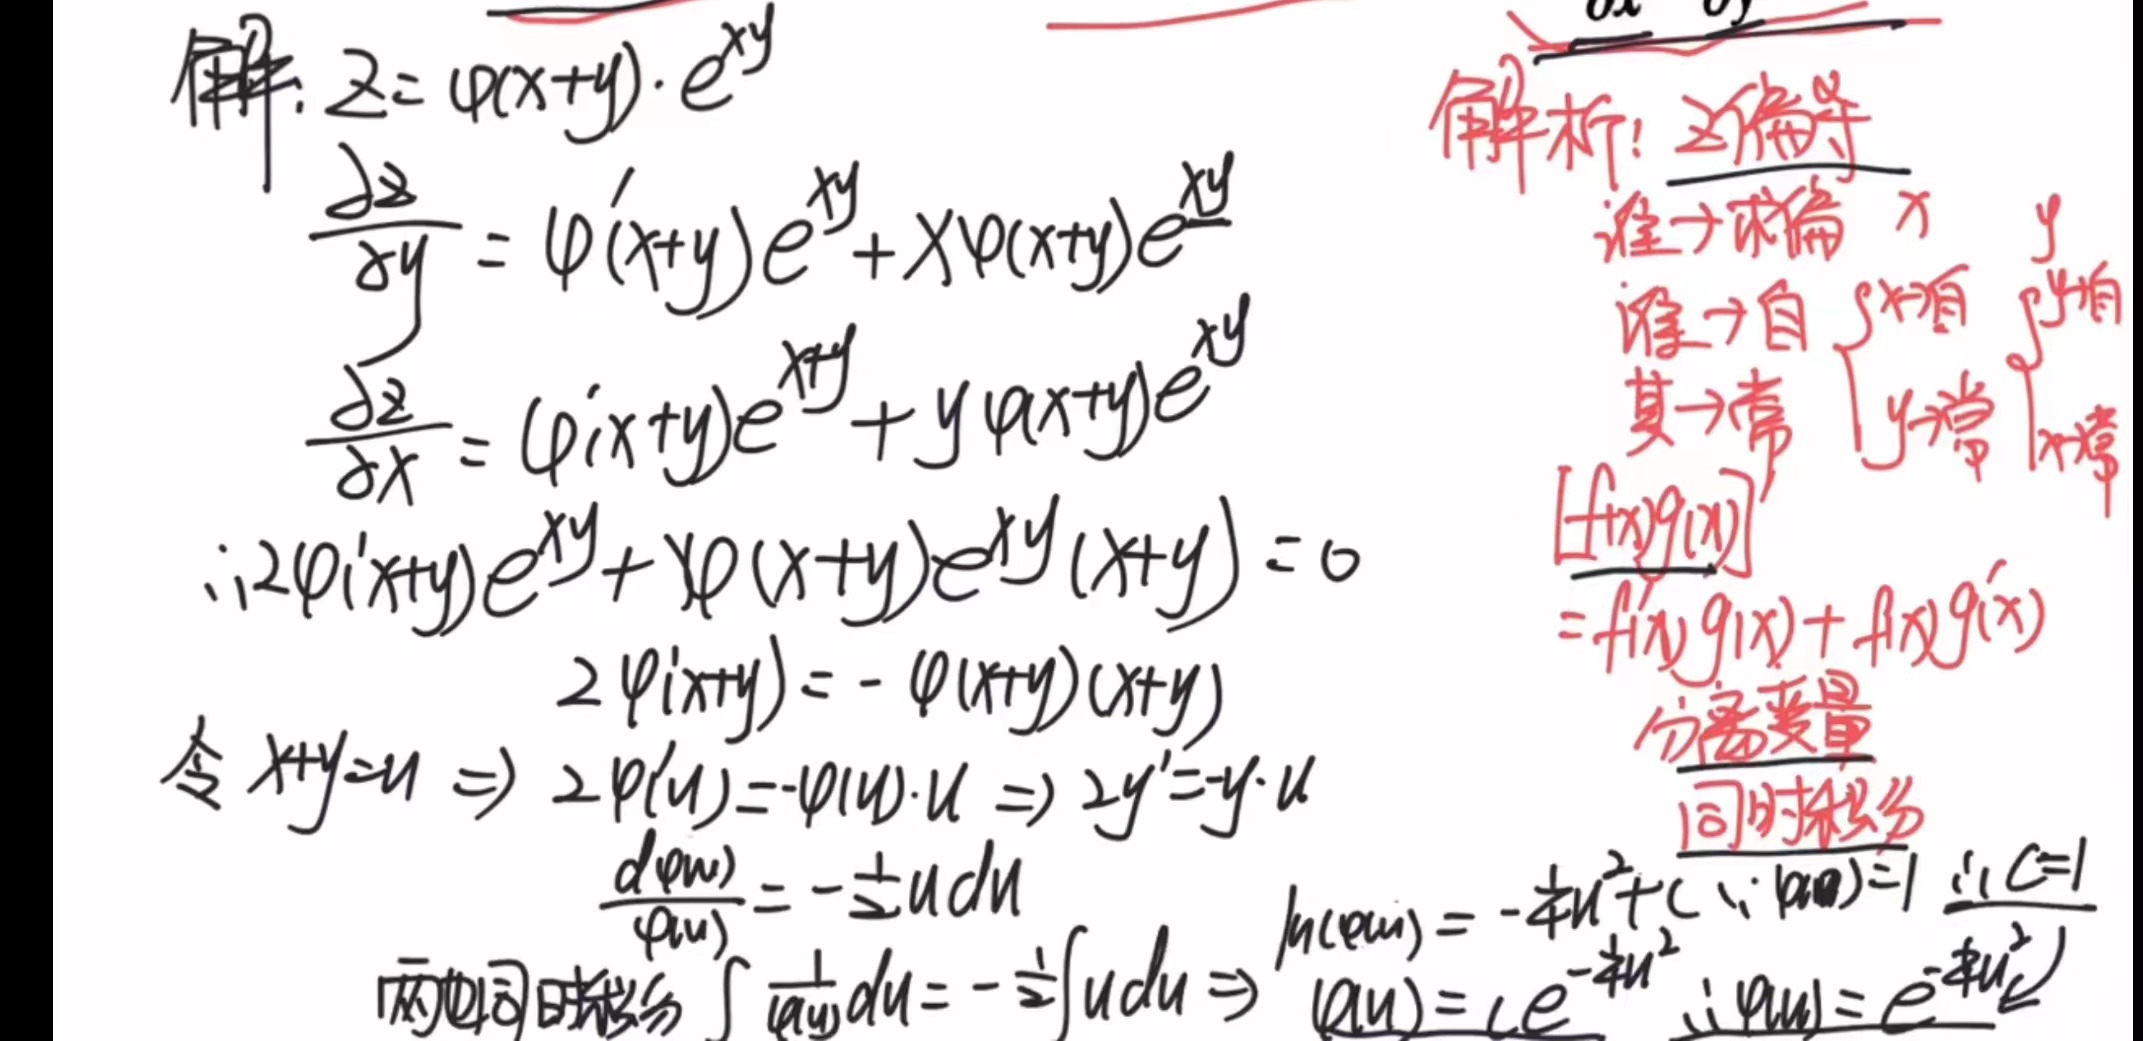 ∂x ∂y
解: z = φ(x+y)·e^{xy}
∂z/∂y = φ'(x+y)e^{xy} + xφ(x+y)e^{xy}
∂z/∂x = φ'(x+y)e^{x+y} + yφ(x+y)e^{xy}
∴ 2φ'(x+y)e^{xy} + φ(x+y)e^{xy}(x+y) = 0
2φ'(x+y) = -φ(x+y)(x+y)
令 x+y=u ⇒ 2φ'(u) = -φ(u)·u ⇒ 2y' = -y·u
dφ(u)/φ(u) = -1/2 u du
两边同时积分 ∫ 1/φ(u) du = -1/2 ∫ u du ⇒
ln(φ(u)) = -1/4 u² + C ∵ φ(0)=1 ∴ C=1
φ(u) = c e^{-1/4 u²} ∴ φ(u) = e^{-1/4 u²}
解析: z偏导
谁→求偏 x y
谁→自 { x→自 { y→自
其→常 y→常 x→常
[f(x)g(x)]'
= f'(x)g(x) + f(x)g'(x)
分离变量
同时积分